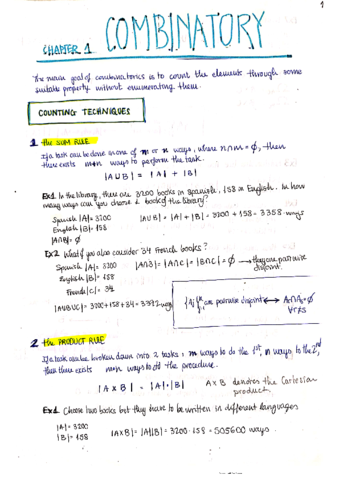 1
CHAPTER 1 COMBINATORY
The main goal of combinatorics is to count the elements through some
suitable property without enumerating them.
COUNTING TECHNIQUES
1 the SUM RULE
If a task can be done in one of m or n ways, where n∩m=∅, then
there exists m+n ways to perform the task.
|A∪B| = |A| + |B|
Ex1 In the library, there are 3200 books in Spanish, 158 in English. In how
many ways can you choose a book of the library?
Spanish |A|= 3200
English |B|= 158
|A∩B|= ∅
|A∪B| = |A| + |B| = 3200 + 158 = 3358 ways
Ex2 What if you also consider 34 French books?
Spanish |A|= 3200
English |B|= 158
French |C|= 34
|A∩B|= |A∩C| = |B∩C| = ∅ → they are pairwise
disjoint.
|A∪B∪C| = 3200+158+34= 3392 ways
are pairwise disjoint ⟷ Ar∩As=∅
∀r≠s
2 the PRODUCT RULE
If a task can be broken down into 2 tasks: m ways to do the 1st, n ways to the 2nd,
then there exists m·n ways to do the procedure.
|A×B| = |A|·|B| A×B denotes the Cartesian
product.
Ex1 Choose two books but they have to be written in different languages
|A|= 3200
|B|= 158
|A×B|= |A||B|= 3200·158 = 505600 ways.